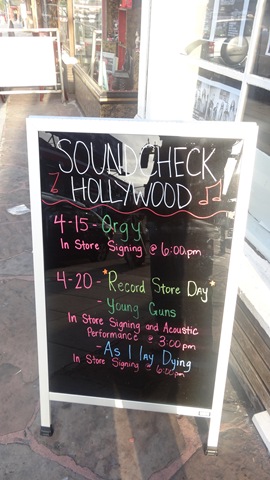 SOUNDCHECK
HOLLYWOOD
4-15 - Orgy
In Store Signing @ 6:00pm
4-20 - *Record Store Day*
- Young Guns
In Store Signing and Acoustic
Performance @ 3:00pm
- As I lay Dying
In Store Signing @ 6:00pm